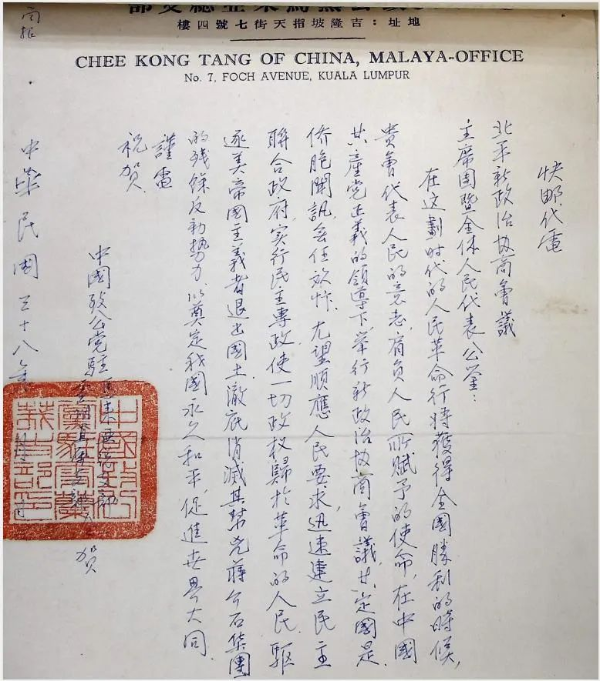 地址：吉隆坡指天街七號四樓
CHEE KONG TANG OF CHINA, MALAYA-OFFICE
No. 7, FOCH AVENUE, KUALA LUMPUR
快郵代電
北平新政治协商會議
主席团暨全体人民代表公鉴：
在这劃时代的人民革命行将獲得全國勝利的時候，
貴會代表人民的意志，肩负人民所赋予的使命，在中國
共產党正義的領導下举行新政治协商會議，共定國是，
侨胞闻訊，会任放忭，尤望顺應人民要求，迅速建立民主
联合政府，实行民主專政，使一切政权歸於革命的人民，驅
逐美帝國主義者退出國土，澈底消滅其幫兇蒋介石集團
的残餘反動势力，以奠定我國永久和平，促進世界大同。
謹電
祝賀
中國致公党駐馬來亞
賀
中华民國三十八年